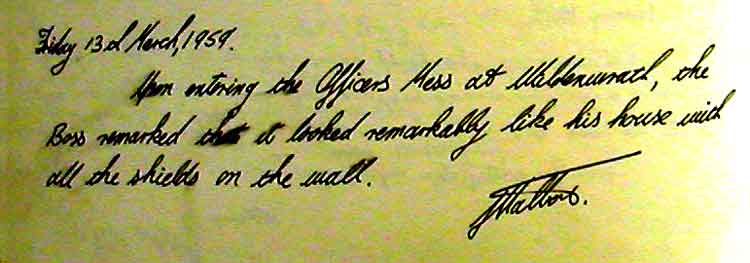 Friday 13th March, 1959.
Upon entering the Officers Mess at Wildenwrath, the
Boss remarked that it looked remarkably like his house with
all the shields on the wall.